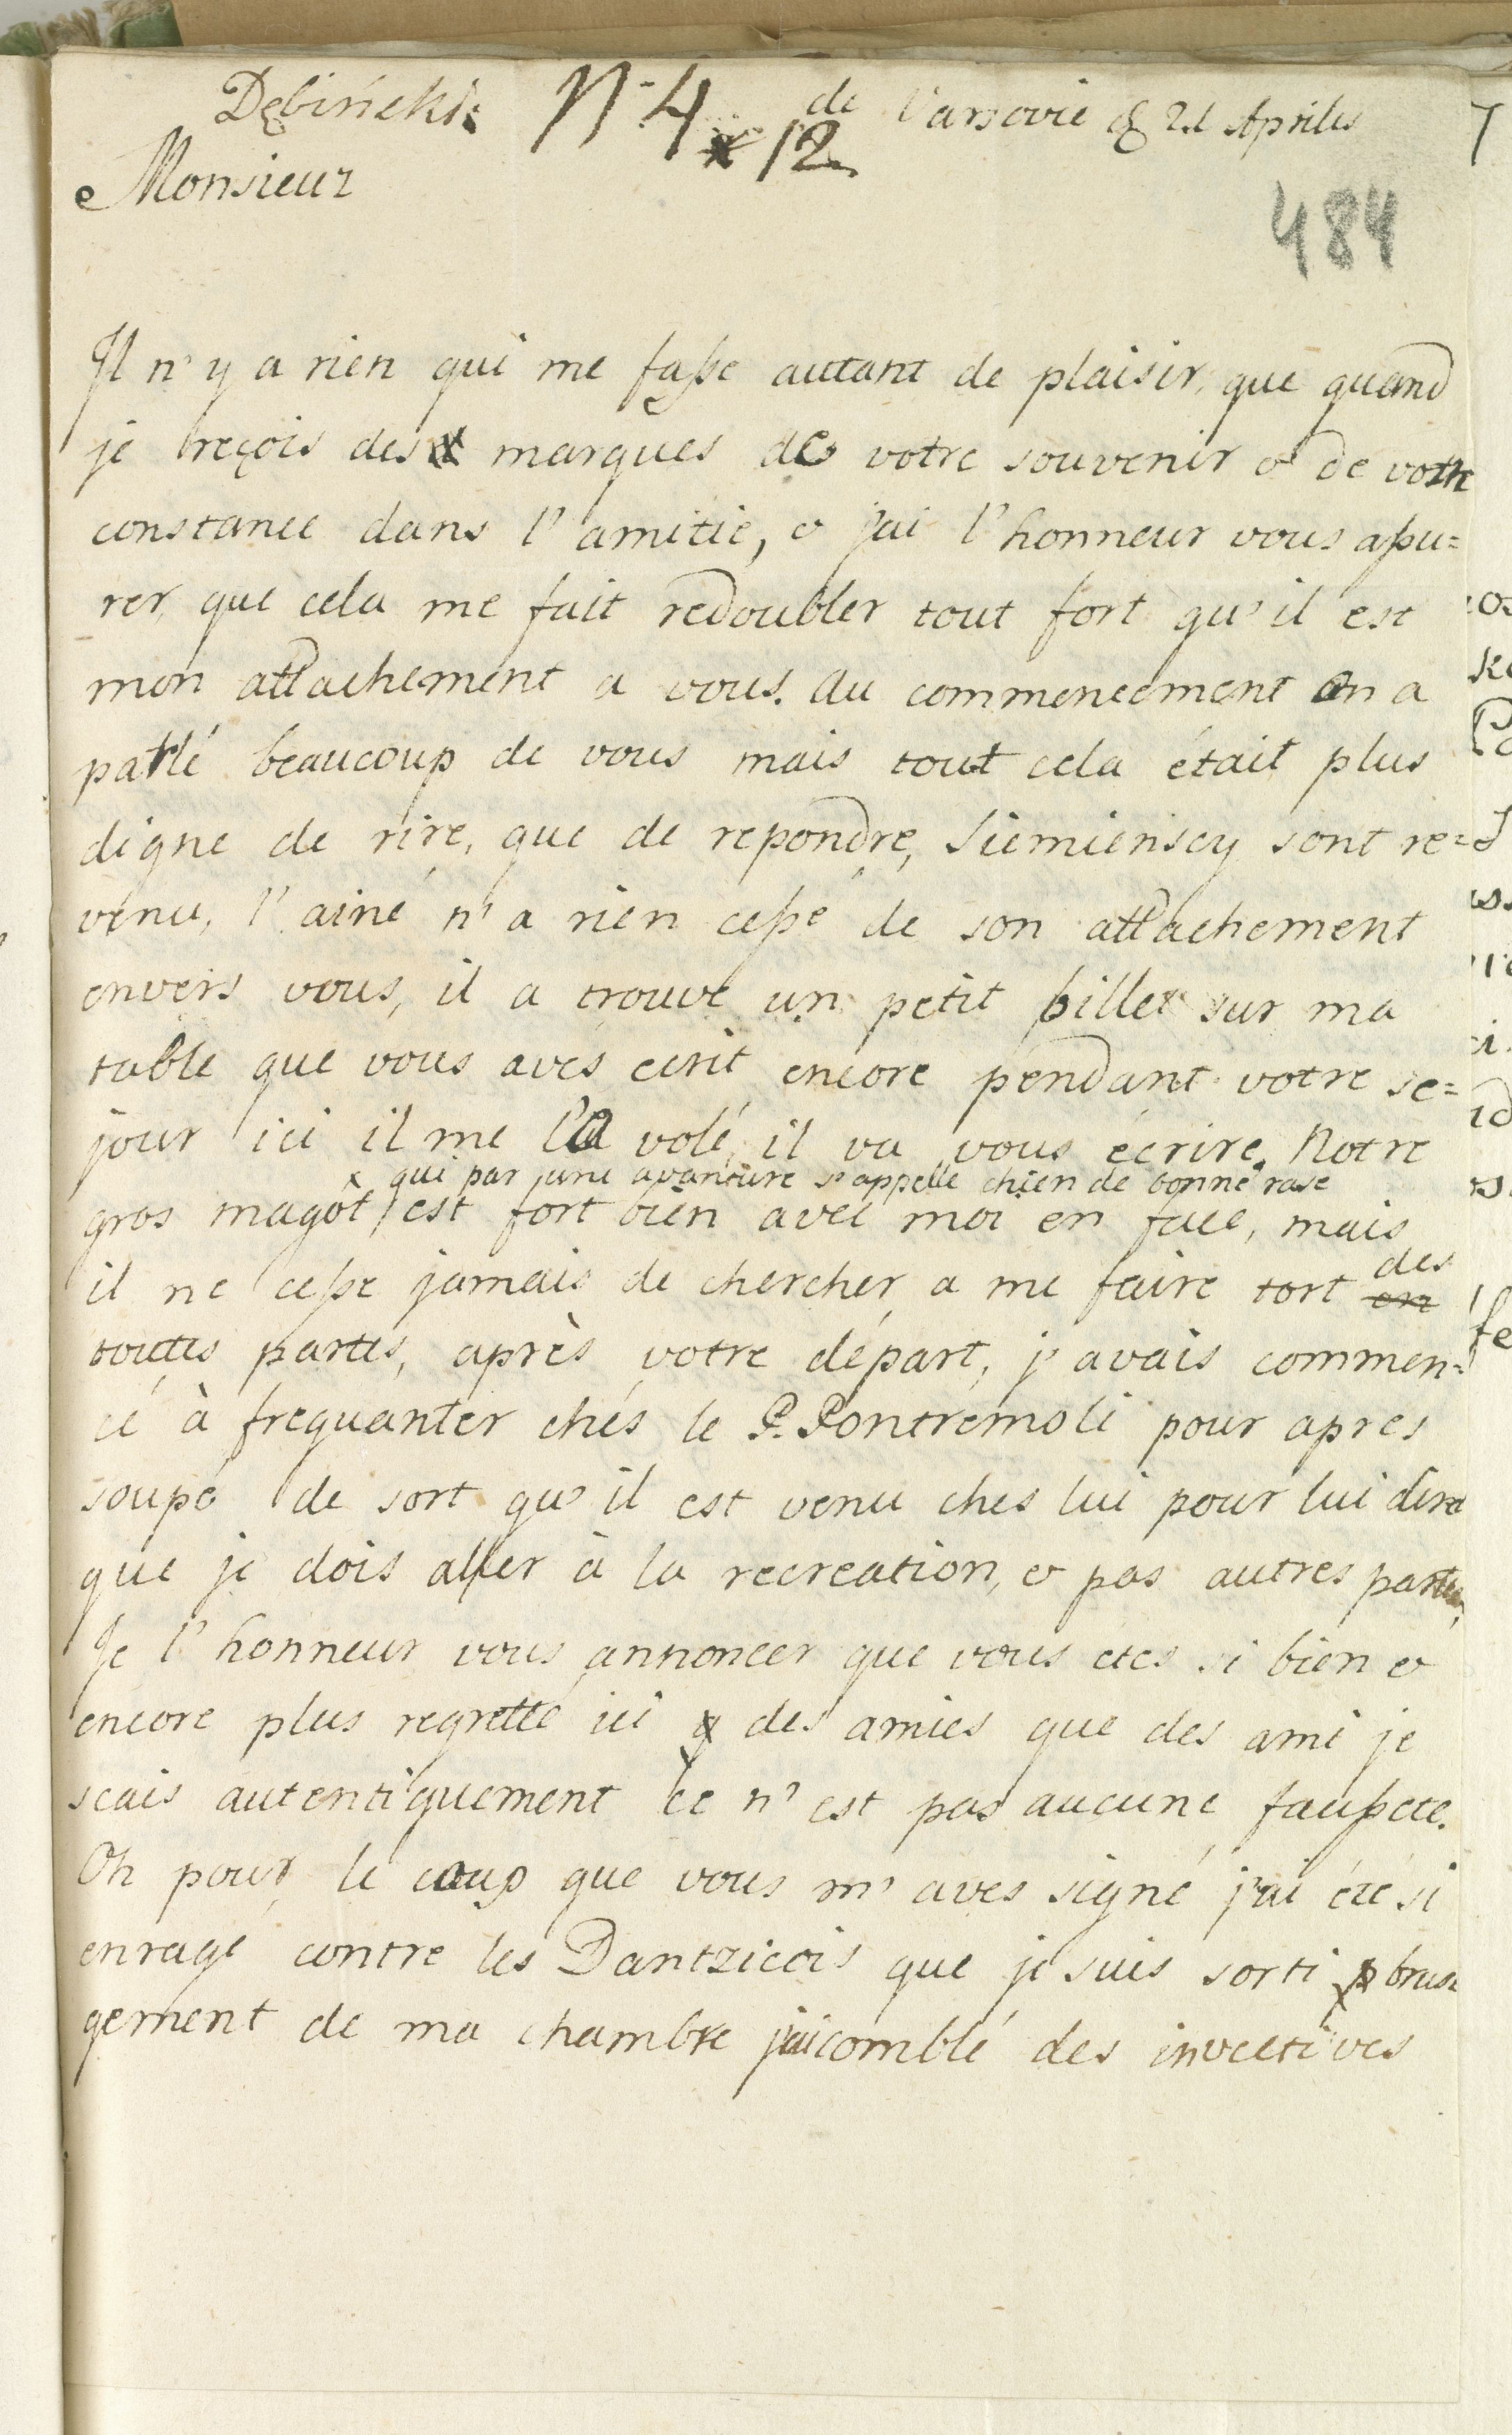 Dębiński N 4 de Varsovie 21 Aprilis
12
Monsieur
484
Il n'y a rien qui me fasse auttant de plaisir, que quand
je reçois des marques de votre souvenir & de votre
constance dans l'amitié, & j'ai l'honneur vous assu=
rer, que cela me fait redoubler tout fort qu'il est
mon attachement a vous. Au commencement on a
parlé beaucoup de vous mais tout cela était plus
digne de rire, que de repondre, Siemieńscy sont re=
venu, l'ainé n'a rien cessé de son attachement
envers vous, il a trouvé un petit billet sur ma
table que vous avés ecrit encore pendant votre se=
jour ici il me l'a volé, il va vous écrire. Notre
x qui par une avanture s'appelle chien de bonne rase
gros magot est fort bien avec moi en face, mais
il ne cesse jamais de chercher a me faire tort des
touttes partes, après votre départ, j'avais commen=
cé à frequanter chés le P. Pontremoli pour apres
soupé de sort qu'il est venu ches lui pour lui dire
que je dois aller à la recreation, & pas autres partes,
Je l'honneur vous annoncer que vous etes si bien &
encore plus regretté ici des amies que des ami je
scais autentiquement ce n'est pas aucune fausseté.
Oh pour le coup que vous m'aves signé j'ai été si
enragé contre les Dantzicois que je suis sorti brus
gement de ma chambre j'ai comblé des invectives